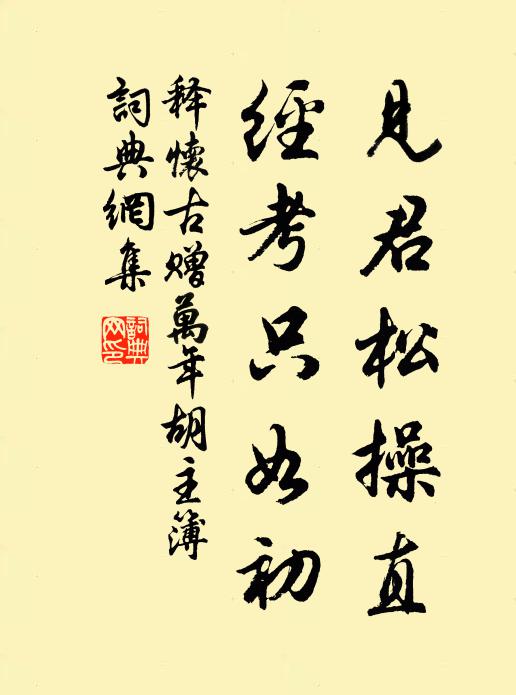 見君松操直
經考只如初
释懷古赠萬年胡主簿
詞典網集
詞典网印